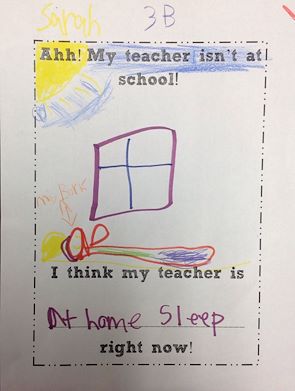 Sarah 3B
Ahh! My teacher isn't at
school!
I think my teacher is
At home Sleep
right now!